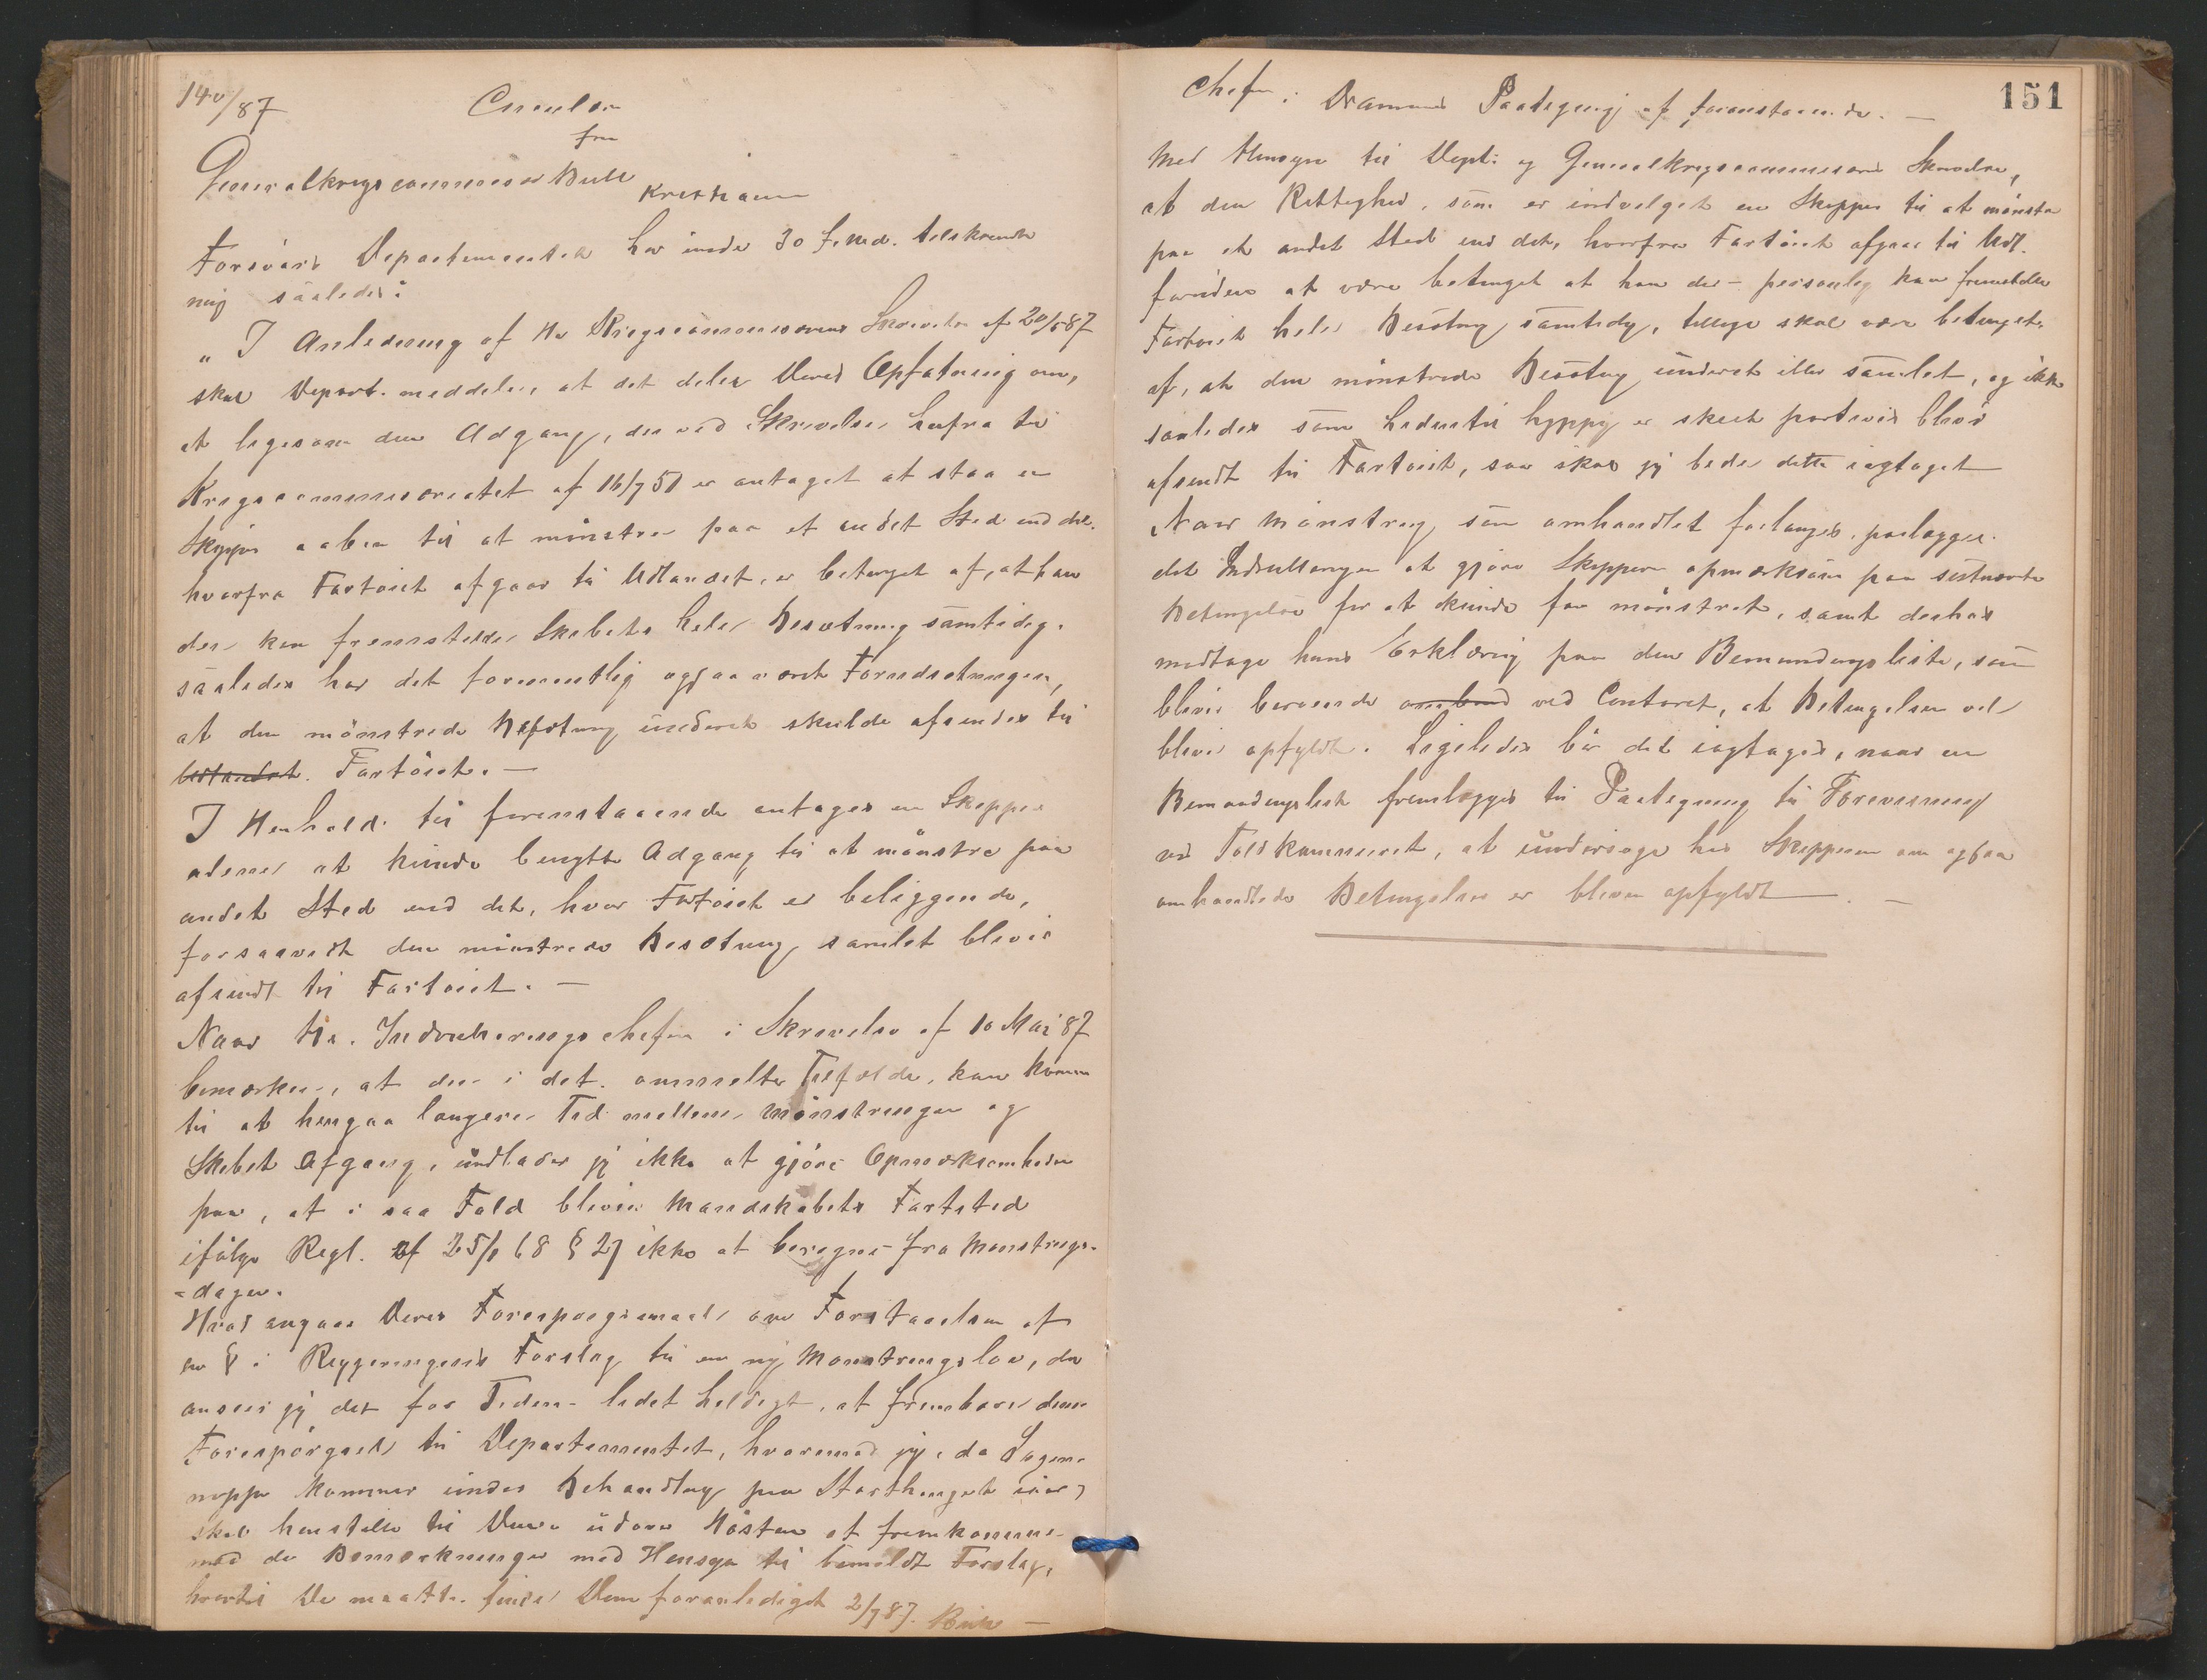 140/87
Circulær
fra
Generalkrigscommissær Bull
Kristiania
Forsvars Departementet har under 30 f. Md. tilskrevet
mig saaledes:
"I Anledning af Hr Krigscommissærens Skrivelse af 20/5 87
skal Depart. meddele, at det deler Deres Opfatning om,
at ligesom den Adgang, der ved Skrivelse herfra til
Krigscommissariatet af 16/7 51 er antaget at staa en
Skipper aaben til at mönstre paa et andet Sted end det,
hvorfra Fartöiet afgaar til Udlandet, er betinget af, at han
der kan fremstille Skibets hele Besætning samtidig,
saaledes har det formentlig ogsaa været Forudsætningen,
at den mönstrede Besætning underet skulde afsendes til
Fartöiet. —
I Henhold til foranstaaende antages en Skipper
alene at kunde benytte Adgang til at mönstre paa
andet Sted end det, hvor Fartöiet er beliggende,
forsaavidt den mönstrede Besætning samlet bliver
afsendt til Fartöiet. —
Naar Hr. Indrulleringschefen i Skrivelse af 10 Mai 87
bemærker, at der i det ommeldte Tilfælde, kan komme
til at hengaa længere Tid mellem Mönstringen og
Skibets Afgang, undlader jeg ikke at gjöre Opmærksomheden
paa, at i saa Fald bliver Mandskabets Fartstid
ifölge Regl. af 25/1 68 § 27 ikke at beregne fra Mönstrings-
=dagen.
Hvad angaar Deres Forespörgsmaal om Forstaaelsen af
en § i Regjeringens Forslag til en ny Mönstringslov, da
anseer jeg det for Tiden lidet heldigt, at frembære denne
Forespörgsel til Departementet, hvorimod jeg, da Sagen
neppe kommer under Behandling paa Storthinget iaar,
skal henstille til Dem udover Hösten at fremkomme
med de Bemærkninger med Hensyn til bemeldte Forslag,
hvortil De maatte finde Dem foranlediget 2/7 87. Bull —
151
Chefen i Drammens Paategning af foranstaaende. —
Med Hensyn til Dept. og Generalkrigscommissærens Skrivelse,
at den Rettighed, som er indvilget en Skipper til at mönstre
paa et andet Sted end det, hvorfra Fartöiet afgaar til Udl.
foruden at være betinget at han der personlig kan fremstille
Fartöiets hele Besætning samtidig, tillige skal være betinget
af, at den mönstrede Besætning underet eller samlet, og ikke
saaledes som hidentil hyppig er skeet partivis bliver
afsendt til Fartöiet, saa skal jeg bede dette iagttaget
Naar Mönstring, som omhandlet forlanges, paalægges
det Indrulleringen at gjöre Skipperen opmærksom paa sidstnævnte
Betingelse for at kunde faa mönstret, samt derhos
modtage hans Erklæring paa den Bemandingsliste, som
bliver beroende ved Contoret, at Betingelsen vil
blive opfyldt. Ligeledes bör det iagttages, naar en
Bemandingsliste fremlægges til Paategning til Forevisning
ved Toldkammeret, at undersöge hos Skipperen om ogsaa
omhandlede Betingelser er bleven opfyldt. —